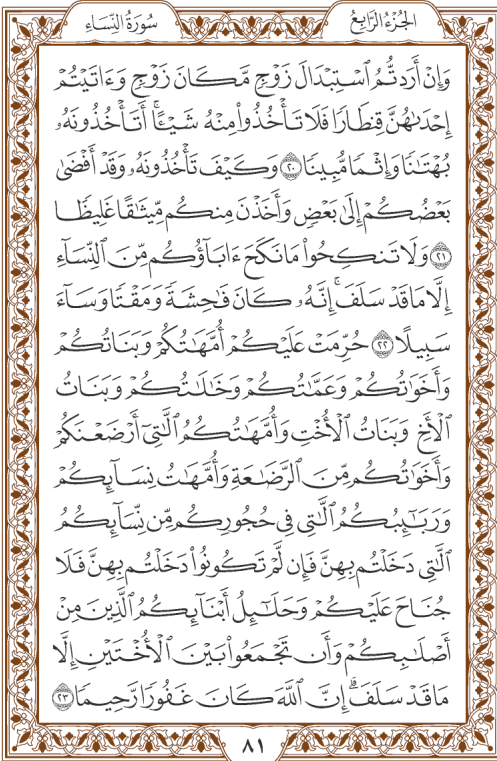 الجزء الرابع
سورة النساء
وَإِنْ أَرَدتُّمُ ٱسْتِبْدَالَ زَوْجٍ مَّكَانَ زَوْجٍ وَءَاتَيْتُمْ
إِحْدَىٰهُنَّ قِنطَارًا فَلَا تَأْخُذُوا۟ مِنْهُ شَيْـًٔا ۚ أَتَأْخُذُونَهُۥ
بُهْتَـٰنًا وَإِثْمًا مُّبِينًا ٢٠ وَكَيْفَ تَأْخُذُونَهُۥ وَقَدْ أَفْضَىٰ
بَعْضُكُمْ إِلَىٰ بَعْضٍ وَأَخَذْنَ مِنكُم مِّيثَـٰقًا غَلِيظًا
٢١ وَلَا تَنكِحُوا۟ مَا نَكَحَ ءَابَآؤُكُم مِّنَ ٱلنِّسَآءِ
إِلَّا مَا قَدْ سَلَفَ ۚ إِنَّهُۥ كَانَ فَـٰحِشَةً وَمَقْتًا وَسَآءَ
سَبِيلًا ٢٢ حُرِّمَتْ عَلَيْكُمْ أُمَّهَـٰتُكُمْ وَبَنَاتُكُمْ
وَأَخَوَٰتُكُمْ وَعَمَّـٰتُكُمْ وَخَـٰلَـٰتُكُمْ وَبَنَاتُ
ٱلْأَخِ وَبَنَاتُ ٱلْأُخْتِ وَأُمَّهَـٰتُكُمُ ٱلَّـٰتِىٓ أَرْضَعْنَكُمْ
وَأَخَوَٰتُكُم مِّنَ ٱلرَّضَـٰعَةِ وَأُمَّهَـٰتُ نِسَآئِكُمْ
وَرَبَـٰٓئِبُكُمُ ٱلَّـٰتِى فِى حُجُورِكُم مِّن نِّسَآئِكُمُ
ٱلَّـٰتِى دَخَلْتُم بِهِنَّ فَإِن لَّمْ تَكُونُوا۟ دَخَلْتُم بِهِنَّ فَلَا
جُنَاحَ عَلَيْكُمْ وَحَلَـٰٓئِلُ أَبْنَآئِكُمُ ٱلَّذِينَ مِنْ
أَصْلَـٰبِكُمْ وَأَن تَجْمَعُوا۟ بَيْنَ ٱلْأُخْتَيْنِ إِلَّا
مَا قَدْ سَلَفَ ۗ إِنَّ ٱللَّهَ كَانَ غَفُورًا رَّحِيمًا ٢٣
٨١